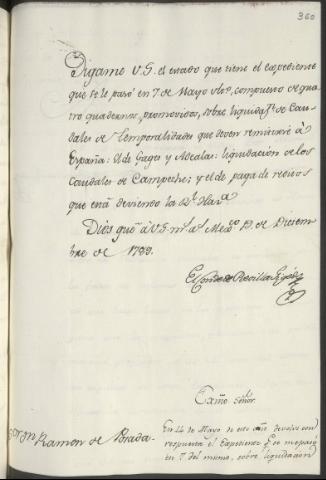 360
Digame V.S. el estado que tiene el expediente
que se le pasó en 7 de Mayo ulto, compuesto de qua-
tro quadernos, promovidos, sobre liquidn. de Cau-
dales de Temporalidades que deven remitirse à
España: el de Gages y Mesadas: liquidacion de los
Caudales de Campeche; y el de paga de reditos
que està deviendo la Rl. Hazda.
Dios gue. à V.S. ms. as. Mexco. de Diciem-
bre de 1789.
El Conde de Revilla Gigedo
Exmo. Señor.
Sor. Dn Ramon de Posada.
En 14 de Mayo de este año devolvi con
respuesta el Expediente q.e se me pasó
en 7 del mismo, sobre liquidacion